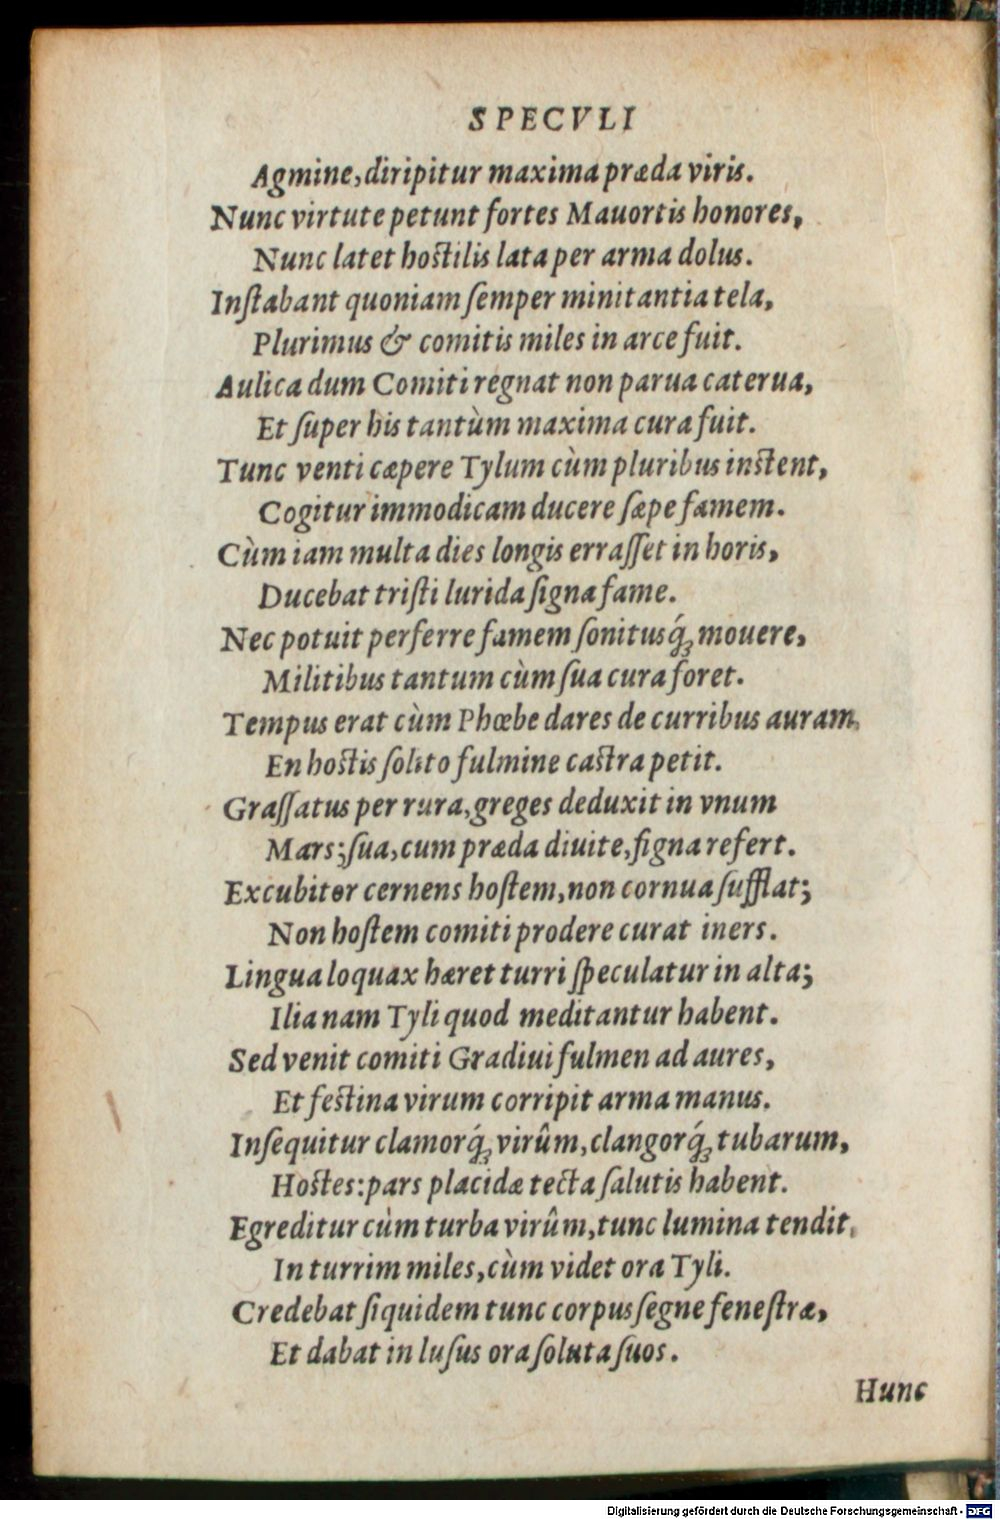 SPECVLI
Agmine, diripitur maxima præda viris.
Nunc virtute petunt fortes Mauortis honores,
Nunc latet hostilis lata per arma dolus.
Inſtabant quoniam ſemper minitantia tela,
Plurimus & comitis miles in arce fuit.
Aulica dum Comiti regnat non parua caterua,
Et ſuper his tantùm maxima cura fuit.
Tunc venti cæpere Tylum cùm pluribus instent,
Cogitur immodicam ducere ſæpe famem.
Cùm iam multa dies longis erraſſet in horis,
Ducebat triſti lurida ſigna fame.
Nec potuit perferre famem ſonitusq́ꝫ mouere,
Militibus tantum cùm ſua cura foret.
Tempus erat cùm Phœbe dares de curribus auram,
En hostis ſolito fulmine castra petit.
Graſſatus per rura, greges deduxit in vnum
Mars; ſua, cum præda diuite, ſigna refert.
Excubitor cernens hoſtem, non cornua ſufflat;
Non hoſtem comiti prodere curat iners.
Lingua loquax hæret turri ſpeculatur in alta;
Ilia nam Tyli quod meditantur habent.
Sed venit comiti Gradiui fulmen ad aures,
Et festina virum corripit arma manus.
Inſequitur clamorq́ꝫ virûm, clangorq́ꝫ tubarum,
Hostes: pars placidæ tecta ſalutis habent.
Egreditur cùm turba virûm, tunc lumina tendit,
In turrim miles, cùm videt ora Tyli.
Credebat ſiquidem tunc corpus ſegne feneſtræ,
Et dabat in luſus ora ſoluta ſuos.
Hunc
Digitalisierung gefördert durch die Deutsche Forschungsgemeinschaft - DFG